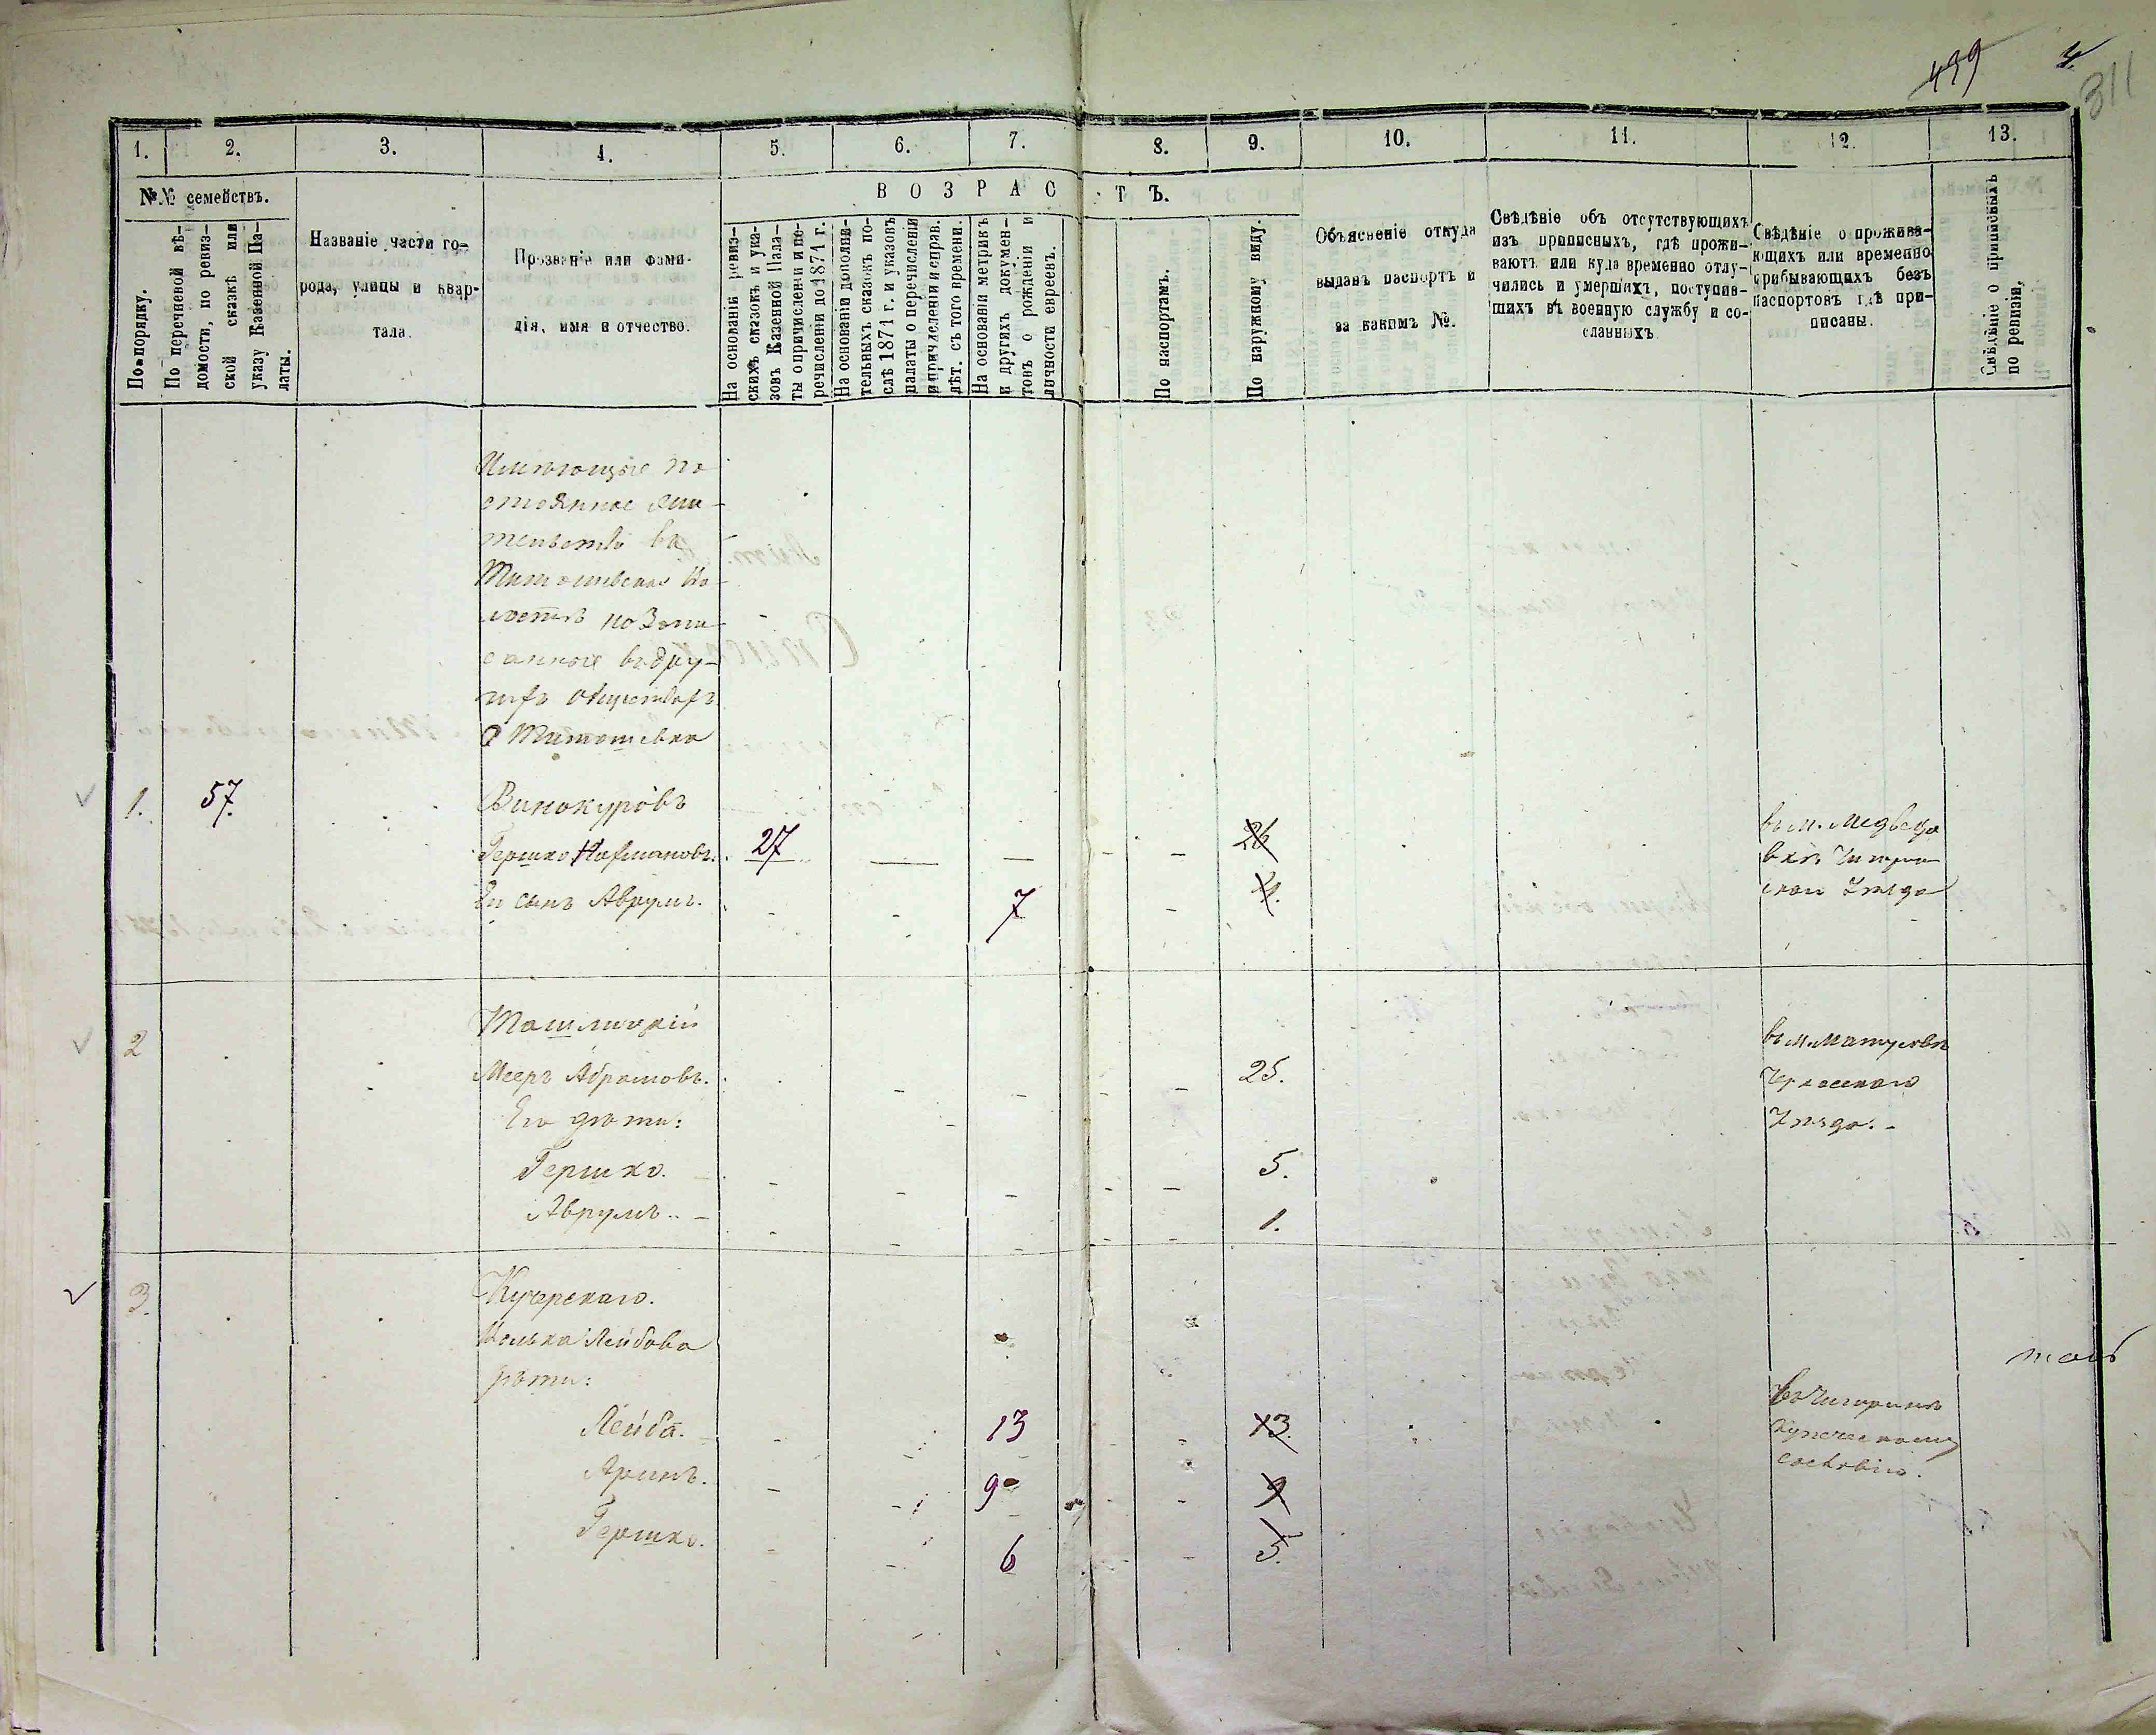 499 4
311
1. 2. 3. 4. 5. 6. 7. 8. 9. 10. 11. 12. 13.
№№ семействъ.
По порядку.
По перечневой вѣ-
домости, по ревиз-
ской сказкѣ или
указу Казенной Па-
латы.
Названіе части го-
рода, улицы и квар-
тала.
Прозваніе или фами-
лія, имя и отчество.
ВОЗРАСТЪ.
На основаніи ревиз-
скихъ сказокъ и ука-
зовъ Казенной Пала-
ты о причисленіи и пе-
речисленіи до 1871 г.
На основаніи дополни-
тельныхъ сказокъ по-
слѣ 1871 г. и указовъ
палаты о перечисленіи
и причисленіи и справ.
лѣт. съ того времени.
На основаніи метрикъ
и другихъ докумен-
товъ о рожденіи и
личности евреевъ.
По паспортамъ.
По наружному виду.
Объясненіе откуда
выданъ паспортъ и
за какимъ №.
Свѣдѣніе объ отсутствующихъ
изъ приписныхъ, гдѣ прожи-
ваютъ или куда временно отлу-
чились и умершихъ, поступив-
шихъ въ военную службу и со-
сланныхъ
Свѣдѣніе о прожива-
ющихъ или временно
прибывающихъ безъ
паспортовъ гдѣ при-
писаны.
Свѣдѣніе о приписныхъ
по ревизіи.
Имѣющіе по
стоянное жи-
тельство въ
Волости но Запи
санные въ дру-
гихъ обществахъ
С Матошевка
1. 57. Винокуровъ
Гершко Нахмановъ. 27 — — – – 26 въ м. Медведо
вкѣ Чигрин
скаго Уезда
Его сынъ Аврумъ. 7 4.
2 Ташлицкій
Мееръ Абрамовъ. 25. въ м. Матусовѣ
Черкасскаго
Уезда.-
Его дети:
Гершко. 5.
Аврумъ. 1.
3. Кучерскаго.
Іолька Лейбова
дети:
Лейба. 13 13. въ Чигиринѣ
Купеческому
сословію.
Аринъ. 9 9
Гершко. 6 5.